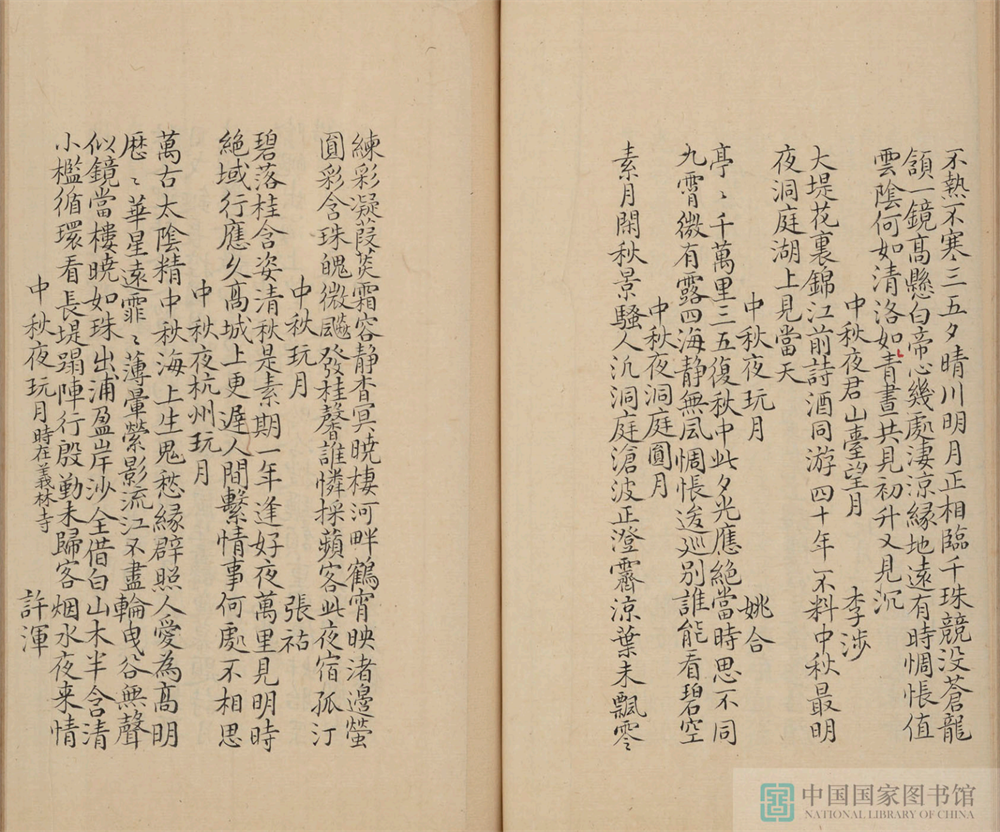 不熱不寒三五夕晴川明月正相臨千珠競没蒼龍
頷一鏡髙懸白帝心幾處淒涼緣地遠有時惆悵值
雲陰何如清洛如青晝共見初升又見沉
中秋夜君山臺望月 李涉
大堤花裏錦江前詩酒同游四十年不料中秋最明
夜洞庭湖上見當天
中秋夜玩月 姚合
亭〻千萬里三五復秋中此夕光應絶當時思不同
九霄微有露四海静無風惆悵逡巡別誰能看碧空
中秋夜洞庭圓月
素月閑秋景騷人泛洞庭滄波正澄霽涼葉未飄零
練彩凝葭菼霜容静杳冥曉棲河畔鶴宵映渚邊螢
圓彩含珠魄微飇發桂馨誰憐採蘋客此夜宿孤汀
中秋玩月 張祜
碧落桂含姿清秋是素期一年逢好夜萬里見明時
絶域行應久髙城上更遲人間繫情事何處不相思
中秋夜杭州玩月
萬古太陰精中秋海上生鬼愁緣辟照人愛為髙明
歴〻華星遠霏〻薄暈縈影流江不盡輪曳谷無聲
似鏡當樓曉如珠出浦盈岸沙全借白山木半含清
小檻循環看長堤蹋陣行殷勤未歸客烟水夜来情
中秋夜玩月時在義林寺 許渾
中国国家图书馆
NATIONAL LIBRARY OF CHINA